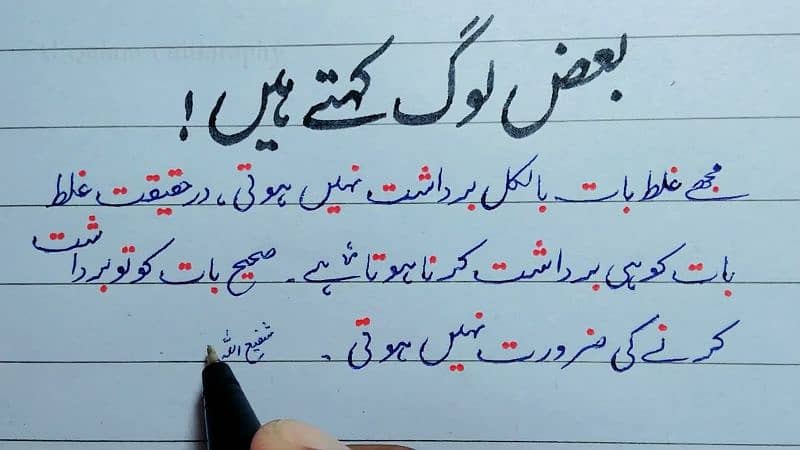 بعض لوگ کہتے ہیں!
مجھے غلط بات بالکل برداشت نہیں ہوتی، درحقیقت غلط
بات کو ہی برداشت کرنا ہوتا ہے۔ صحیح بات کو تو برداشت
کرنے کی ضرورت نہیں ہوتی۔
شفیع اللہ